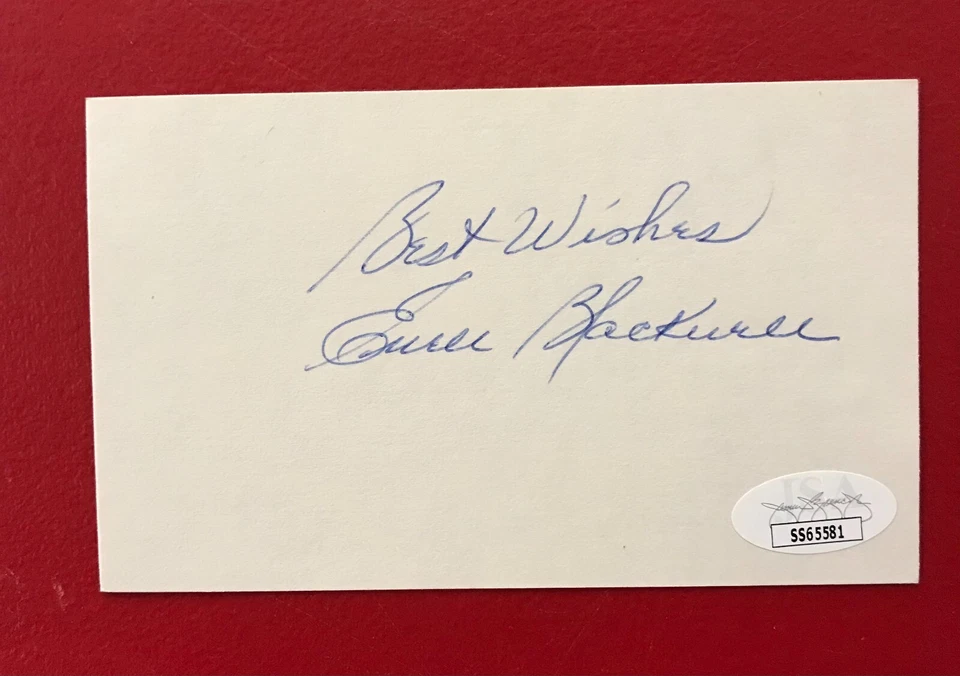 Best Wishes
Ewell Blackwell
JSA
SS65581